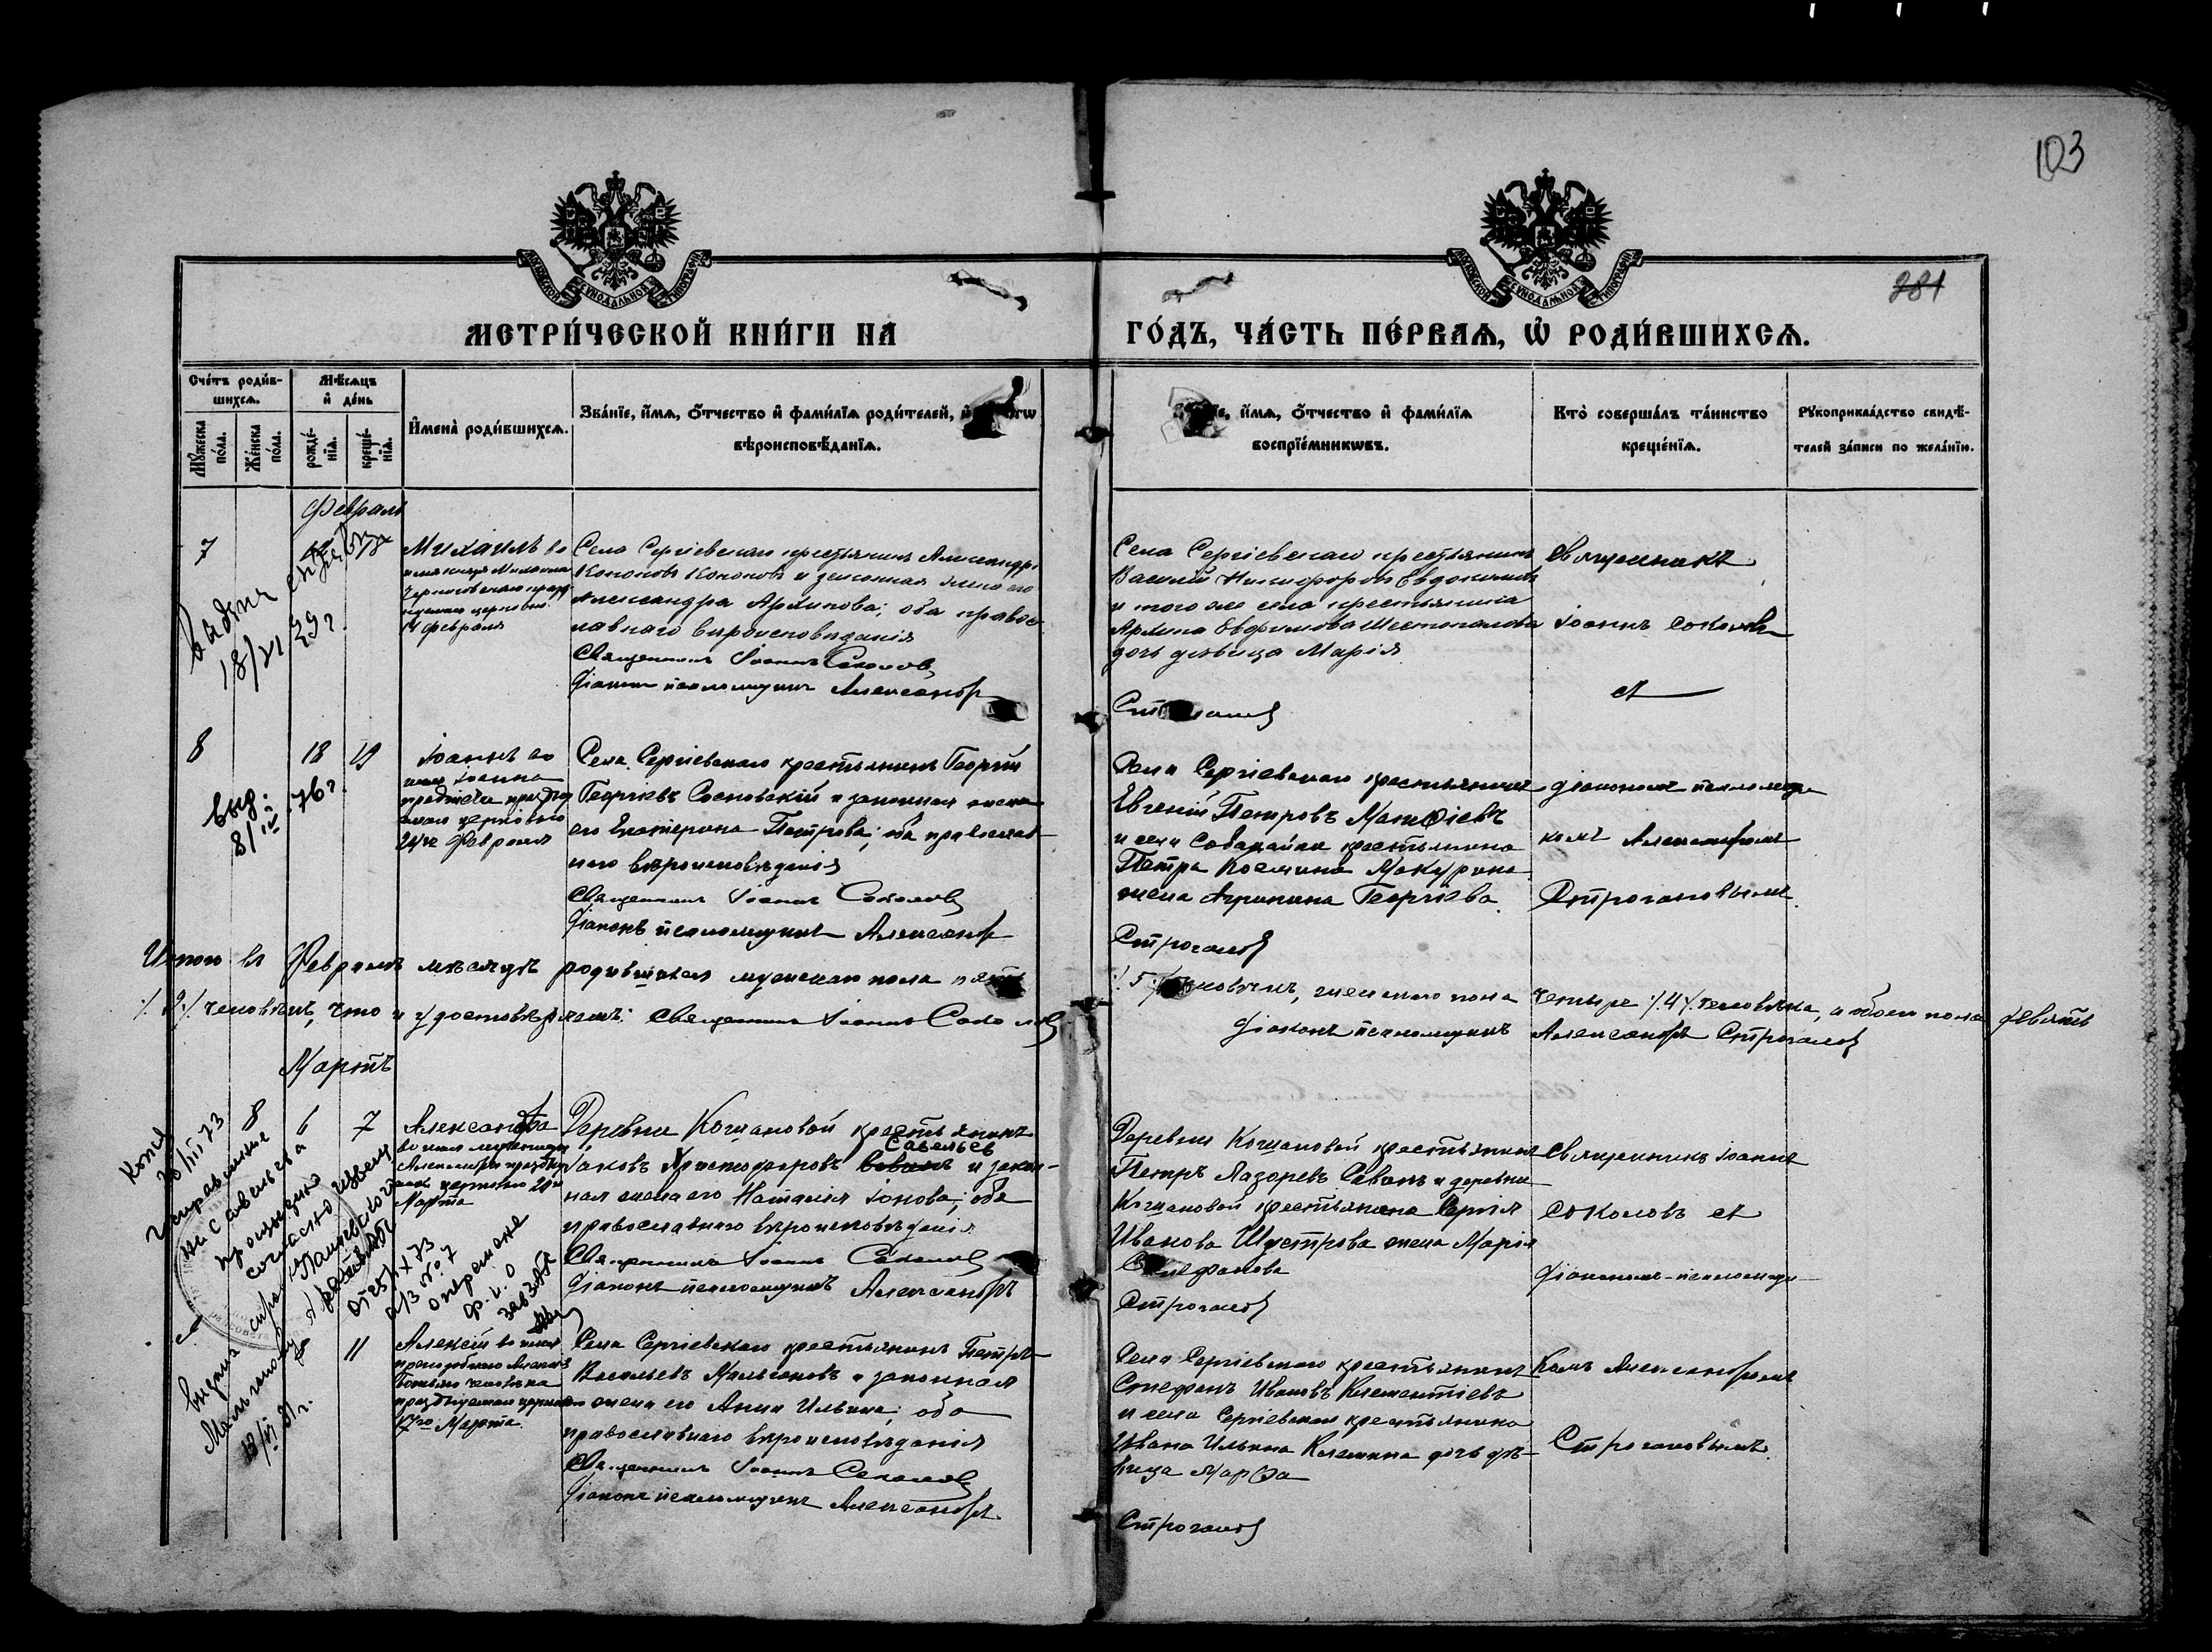 103
281
МЕТРИ́ЧЕСКОЙ КНИ́ГИ НА
ГО́ДЪ, ЧА́СТЬ ПЕ́РВАѦ, Ѡ҆ РОДИ́ВШИХСѦ.
Сче́тъ роди́в-
шихсѧ.
Мѣ́сѧцъ
и҆ де́нь
Мꙋ́жеска по́ла.
Же́нска по́ла.
рожде́-
нїѧ.
креще́-
нїѧ.
И҆мена̀ роди́вшихсѧ.
Зва́нїе, и҆́мѧ, ѻ҆́тчество и҆ фами́лїѧ роди́телей, и҆
вѣроисповѣ́данїѧ.
и҆́мѧ, ѻ҆́тчество и҆ фами́лїѧ
воспрїе́мникѡвъ.
Кто̀ соверша́лъ та́инство
креще́нїѧ.
Рꙋкоприкла́дство свидѣ́-
телей за́писи по жела́нїю.
Февраль
7
18
Михаилъ во
имя князя Михаила
Черниговскаго празд
нуемаго церковію
14 февраля
Села Сергіевскаго крестьянинъ Александръ
Кононовъ Кононовъ и законная жена его
Александра Архипова; оба правос
лавнаго вѣроисповѣданія
Священникъ Іоаннъ Соколовъ
Діаконъ псаломщикъ Александръ
Села Сергіевскаго крестьянинъ
Василій Никифоровъ Евдокимовъ
и того же села крестьянина
Архипа Евфимова Шестопалова
дочь дѣвица Марія
Священникъ
Іоаннъ Соколовъ
18/VI 29 г.
8
18 19
Іоаннъ во
имя Іоанна
предтечи празду
емаго церковію
24го Февраля
Села Сергіевскаго крестьянинъ Георгій
Георгіевъ Сосновскій и законная жена
его Екатерина Петрова; оба православ-
наго вѣроисповѣданія
Священникъ Іоаннъ Соколовъ
Діаконъ псаломщикъ Александръ
Села Сергіевскаго крестьянинъ
Евгеній Петровъ Матѳіевъ
и села Собакайки крестьянина
Петра Космина Мокурина
жена Агрипина Георгіева
Строгановъ
діакономъ псаломщи
комъ Александромъ
Строгановымъ.
выд.
8/IV 76 г.
Итого въ Февралѣ мѣсяцѣ родившихся мужскаго пола пять
/.5./ человѣкъ, женскаго пола четыре /.4./ человѣка, а обоего пола девять
/.9./ человѣкъ, что и удостовѣряемъ: Священникъ Іоаннъ Соколовъ
Діаконъ псаломщикъ Александръ Строгановъ
Мартъ
8 6 7
Александра
во имя мученицы
Александры празднуе
церковію 20го
Марта
Деревни Кошановой крестьянинъ
Савельев
Іаковъ Христофоровъ и закон-
ная жена его Наталія Іонова; оба
православнаго вѣроисповѣданія
Священникъ Іоаннъ Соколовъ
Діаконъ псаломщикъ Александръ
Деревни Кошановой крестьянинъ
Петръ Лазаревъ Савинъ и деревни
Кошановой крестьянина Сергія
Иванова Шустрова жена Марія
Стефанова
Строгановъ
Священникъ Іоаннъ
Соколовъ
діакономъ-псаломщи-
28/III 73
исправление
на Савельева
произведено
согласно извещ
от 25/IX 73
о перемене
ф.и.о
11
Алексій во имя
преподобнаго Алексія
Божьяго человѣка
празднуемаго церковію
17го Марта
Села Сергіевскаго крестьянинъ Петръ
Васильевъ Мальгановъ и законная
жена его Анна Ильина; оба
православнаго вѣроисповѣданія
Священникъ Іоаннъ Соколовъ
Діаконъ псаломщикъ Александръ
Села Сергіевскаго крестьянинъ
Стефанъ Ивановъ Клементіевъ
и села Сергіевскаго крестьянина
Ивана Ильина Клемина дочь дѣ-
вица Марѳа
Строгановъ
комъ Александромъ
Строгановымъ.
выдана справка